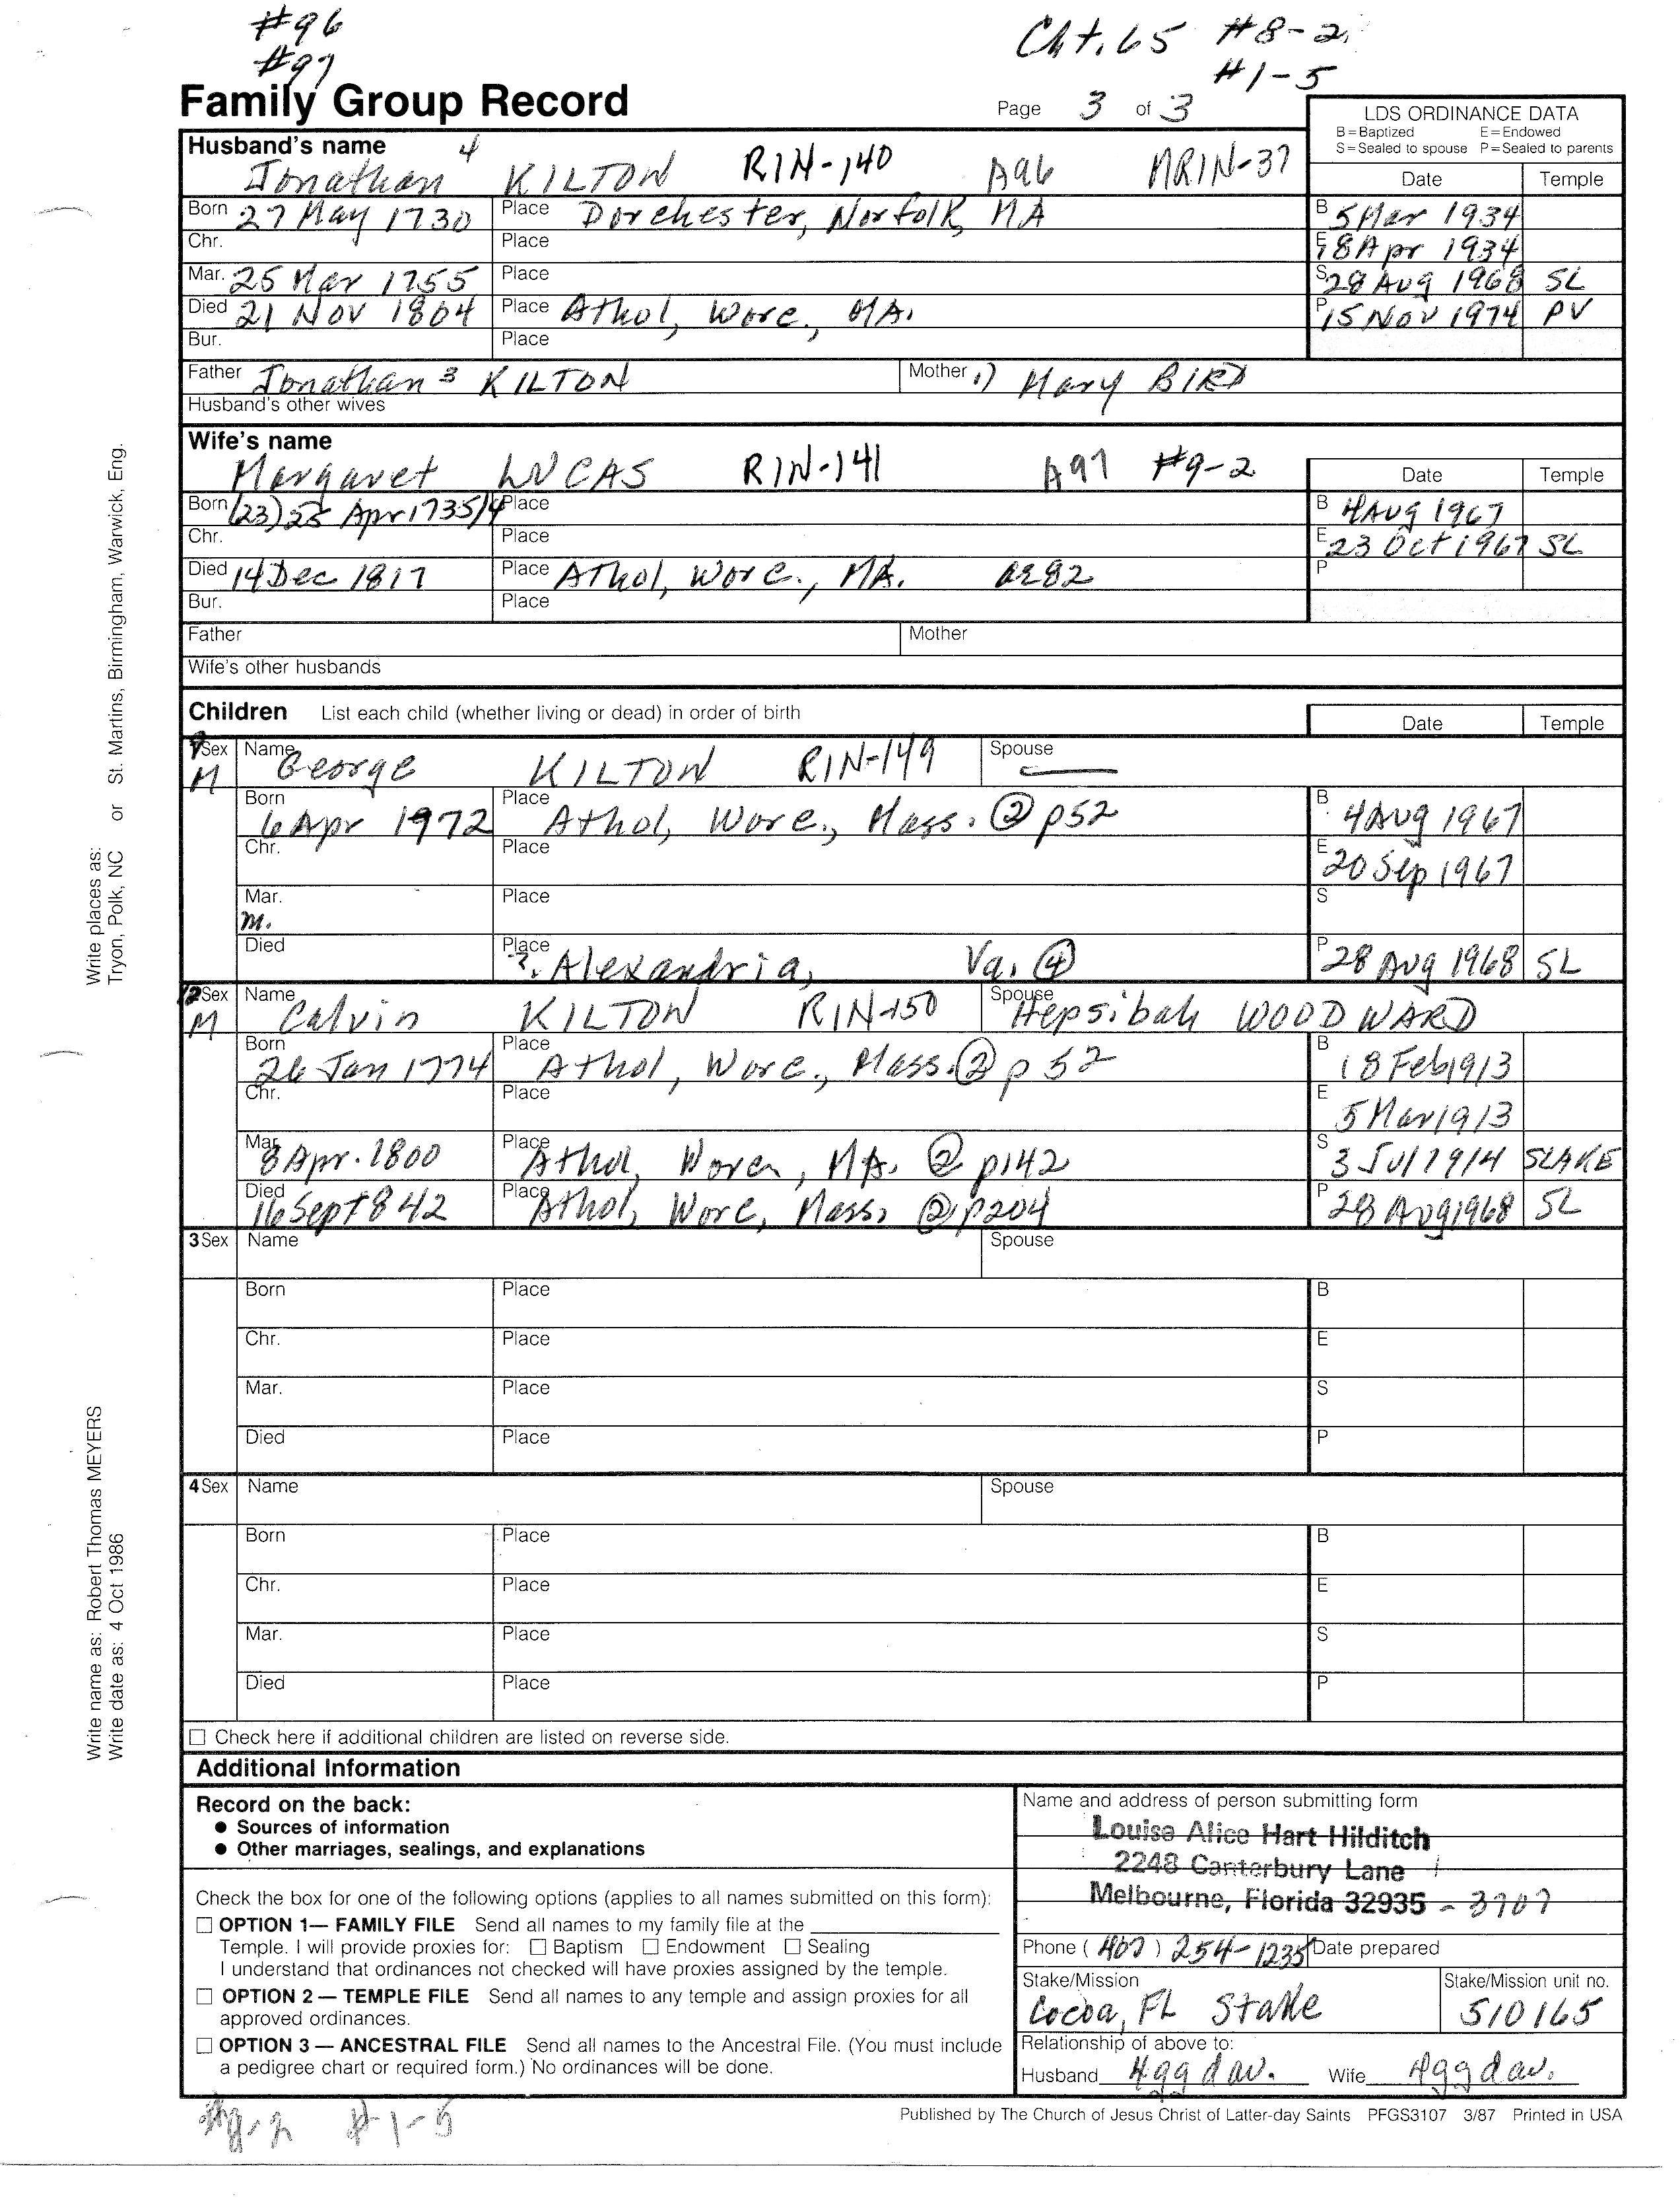 #96
#97
Cht. 65 #8-2
#1-5
Family Group Record
Page 3 of 3
LDS ORDINANCE DATA
B=Baptized E=Endowed
S=Sealed to spouse P=Sealed to parents
Date Temple
Husband's name
Jonathan 4 KILTON RIN-140 A96 MRIN-37
Born 27 May 1730 Place Dorchester, Norfolk, MA B 5 Mar 1934
Chr. Place E 18 Apr 1934
Mar. 25 Mar 1755 Place S 28 Aug 1968 SL
Died 21 Nov 1804 Place Athol, Worc., MA. P 15 Nov 1974 PV
Bur. Place
Father Jonathan 3 KILTON Mother 1) Mary BIRD
Husband's other wives
Wife's name
Margaret LUCAS RIN-141 A97 #9-2
Date Temple
Born (23) 25 Apr 1735/4 Place B 4 Aug 1967
Chr. Place E 23 Oct 1967 SL
Died 14 Dec 1817 Place Athol, Worc., MA. P
Bur. Place
Father Mother
Wife's other husbands
Children List each child (whether living or dead) in order of birth
Date Temple
Sex Name Spouse
M George KILTON RIN-149 —
Born 6 Apr 1972 Place Athol, Worc., Mass. ② p52 B 4 Aug 1967
Chr. Place E 20 Sep 1967
Mar. Place S
m.
Died Place ?. Alexandria, Va. ④ P 28 Aug 1968 SL
Sex Name Spouse
M Calvin KILTON RIN-150 Hepsibah WOODWARD
Born 26 Jan 1774 Place Athol, Worc., Mass. ② p 52 B 18 Feb 1913
Chr. Place E 5 Mar 1913
Mar. 8 Apr. 1800 Place Athol, Worc., MA. ② p142 S 3 Jul 1914 SLAKE
Died 16 Sept 842 Place Athol, Worc, Mass, ② p204 P 28 Aug 1968 SL
3 Sex Name Spouse
Born Place B
Chr. Place E
Mar. Place S
Died Place P
4 Sex Name Spouse
Born Place B
Chr. Place E
Mar. Place S
Died Place P
☐ Check here if additional children are listed on reverse side.
Additional Information
Record on the back:
● Sources of information
● Other marriages, sealings, and explanations
Check the box for one of the following options (applies to all names submitted on this form):
☐ OPTION 1— FAMILY FILE Send all names to my family file at the
Temple. I will provide proxies for: ☐ Baptism ☐ Endowment ☐ Sealing
I understand that ordinances not checked will have proxies assigned by the temple.
☐ OPTION 2 — TEMPLE FILE Send all names to any temple and assign proxies for all
approved ordinances.
☐ OPTION 3 — ANCESTRAL FILE Send all names to the Ancestral File. (You must include
a pedigree chart or required form.) No ordinances will be done.
Name and address of person submitting form
Louise Alice Hart Hilditch
2248 Canterbury Lane
Melbourne, Florida 32935 - 3707
Phone (407) 254-1235 Date prepared
Stake/Mission Stake/Mission unit no.
Cocoa, FL Stake 510165
Relationship of above to:
Husband 4gg dau. Wife 4gg dau.
#8-2 #1-5
Published by The Church of Jesus Christ of Latter-day Saints PFGS3107 3/87 Printed in USA
Write places as: Tryon, Polk, NC or St. Martins, Birmingham, Warwick, Eng.
Write name as: Robert Thomas MEYERS
Write date as: 4 Oct 1986